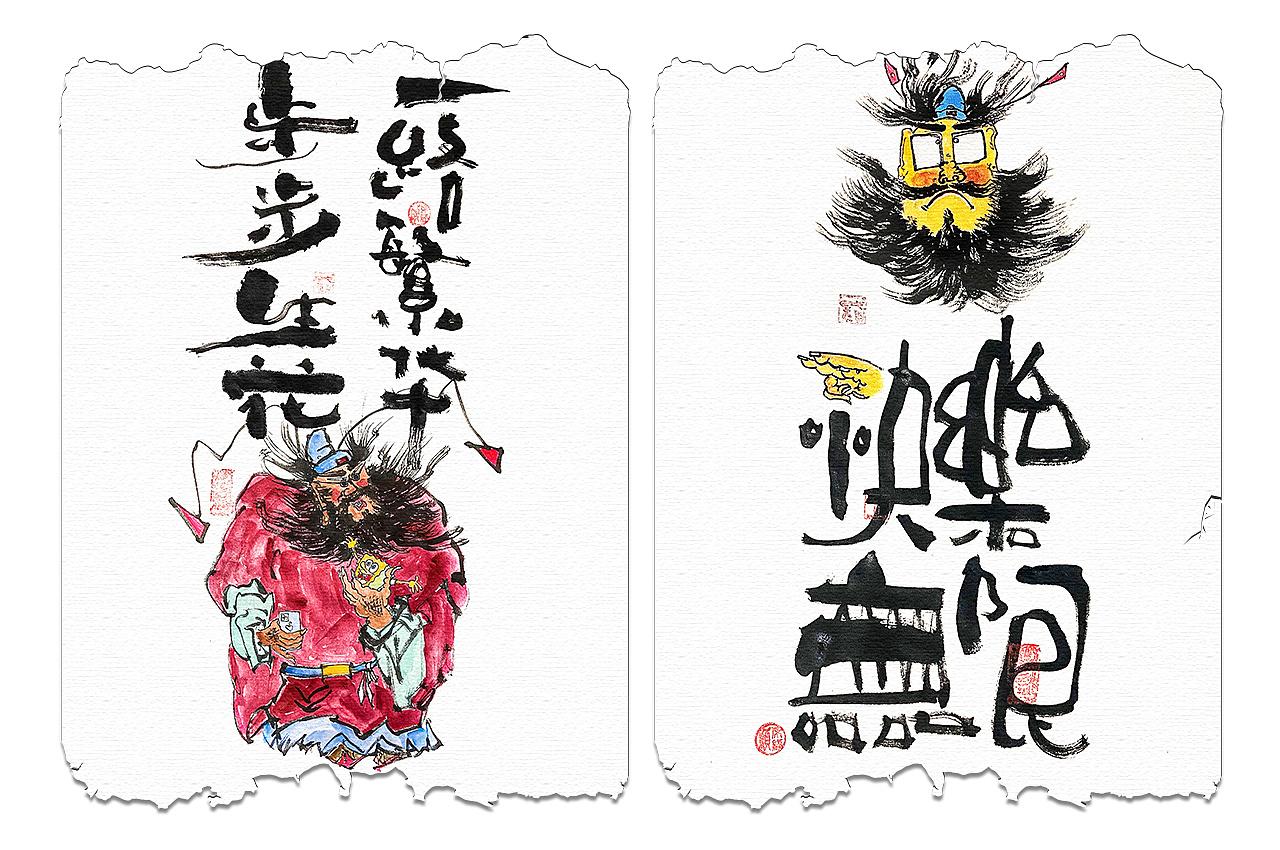 一路繁华
步步生花
快樂
無限